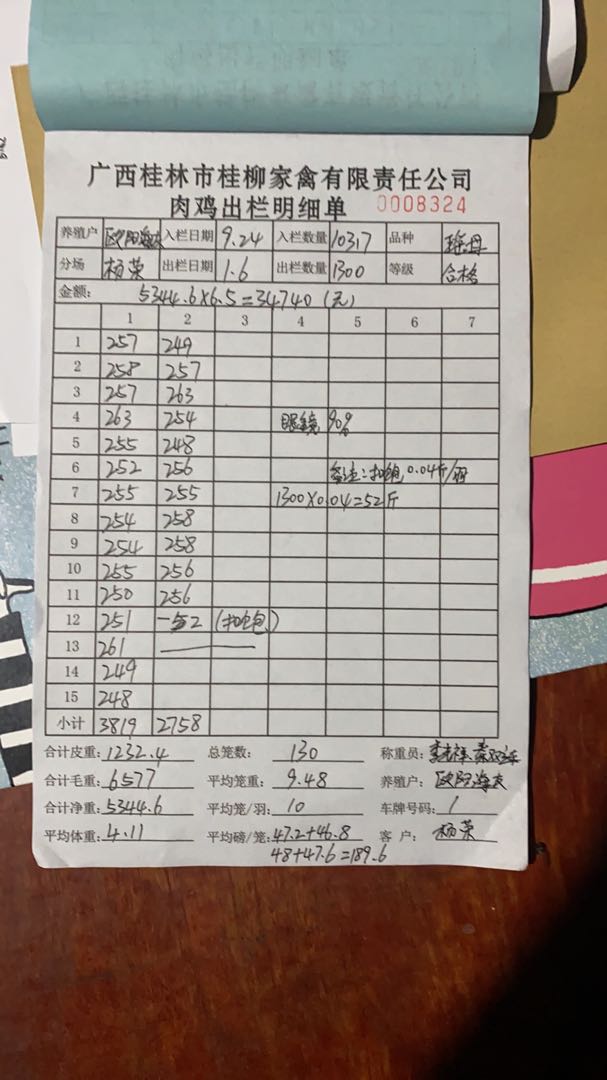 广西桂林市桂柳家禽有限责任公司
肉鸡出栏明细单 0008324
养殖户 欧阳海友 入栏日期 9.24 入栏数量 10317 品种 瑶母
分场 杨荣 出栏日期 1.6 出栏数量 1300 等级 合格
金额: 5344.6×6.5=34740(元)
1 2 3 4 5 6 7
1 257 249
2 258 257
3 257 263
4 263 254 眼镜 90%
5 255 248
6 252 256 备注:扣饱 0.04斤/羽
7 255 255 1300×0.04=52斤
8 254 258
9 254 258
10 255 256
11 250 256
12 251 -52 (扣饱)
13 261
14 249
15 248
小计 3819 2758
合计皮重: 1232.4 总笼数: 130 称重员:
合计毛重: 6577 平均笼重: 9.48 养殖户: 欧阳海友
合计净重: 5344.6 平均笼/羽: 10 车牌号码: 1
平均体重: 4.11 平均磅/笼: 47.2+46.8 客户: 杨荣
48+47.6=189.6